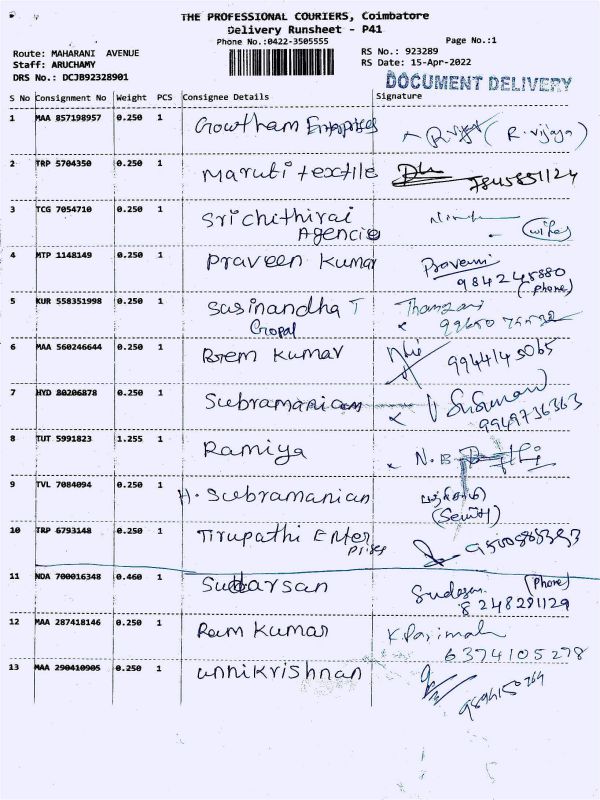 THE PROFESSIONAL COURIERS, Coimbatore
Delivery Runsheet - P41
Phone No.:0422-3505555
Page No.:1
Route: MAHARANI AVENUE
RS No.: 923289
Staff: ARUCHAMY
RS Date: 15-Apr-2022
DRS No.: DCJB92328901
DOCUMENT DELIVERY
S No Consignment No Weight PCS Consignee Details Signature
1 MAA 857198957 0.250 1 Gowtham Enterprises R. Vijaya (R. Vijaya)
2 TRP 5704350 0.250 1 Maruti textile 7845851124
3 TCG 7054710 0.250 1 Srichithirai
Agencie (wife)
4 MTP 1148149 0.250 1 Praveen Kumar Praveen
9842245880
(Phone)
5 KUR 558351998 0.250 1 Sasinandha T
Gopal
6 MAA 560246644 0.250 1 Prem Kumar 9944145065
7 HYD 80206878 0.250 1 Subramaniam
9949736363
8 TUT 5991823 1.255 1 Ramiya N.B
9 TVL 7084094 0.250 1 H. Subramanian
10 TRP 6793148 0.250 1 Tirupathi Enter
prises
11 NDA 700016348 0.460 1 Sudarsan Sudarsan (Phone)
8248291129
12 MAA 287418146 0.250 1 Ram Kumar K. Parimala
6374105278
13 MAA 290410905 0.250 1 unnikrishnan